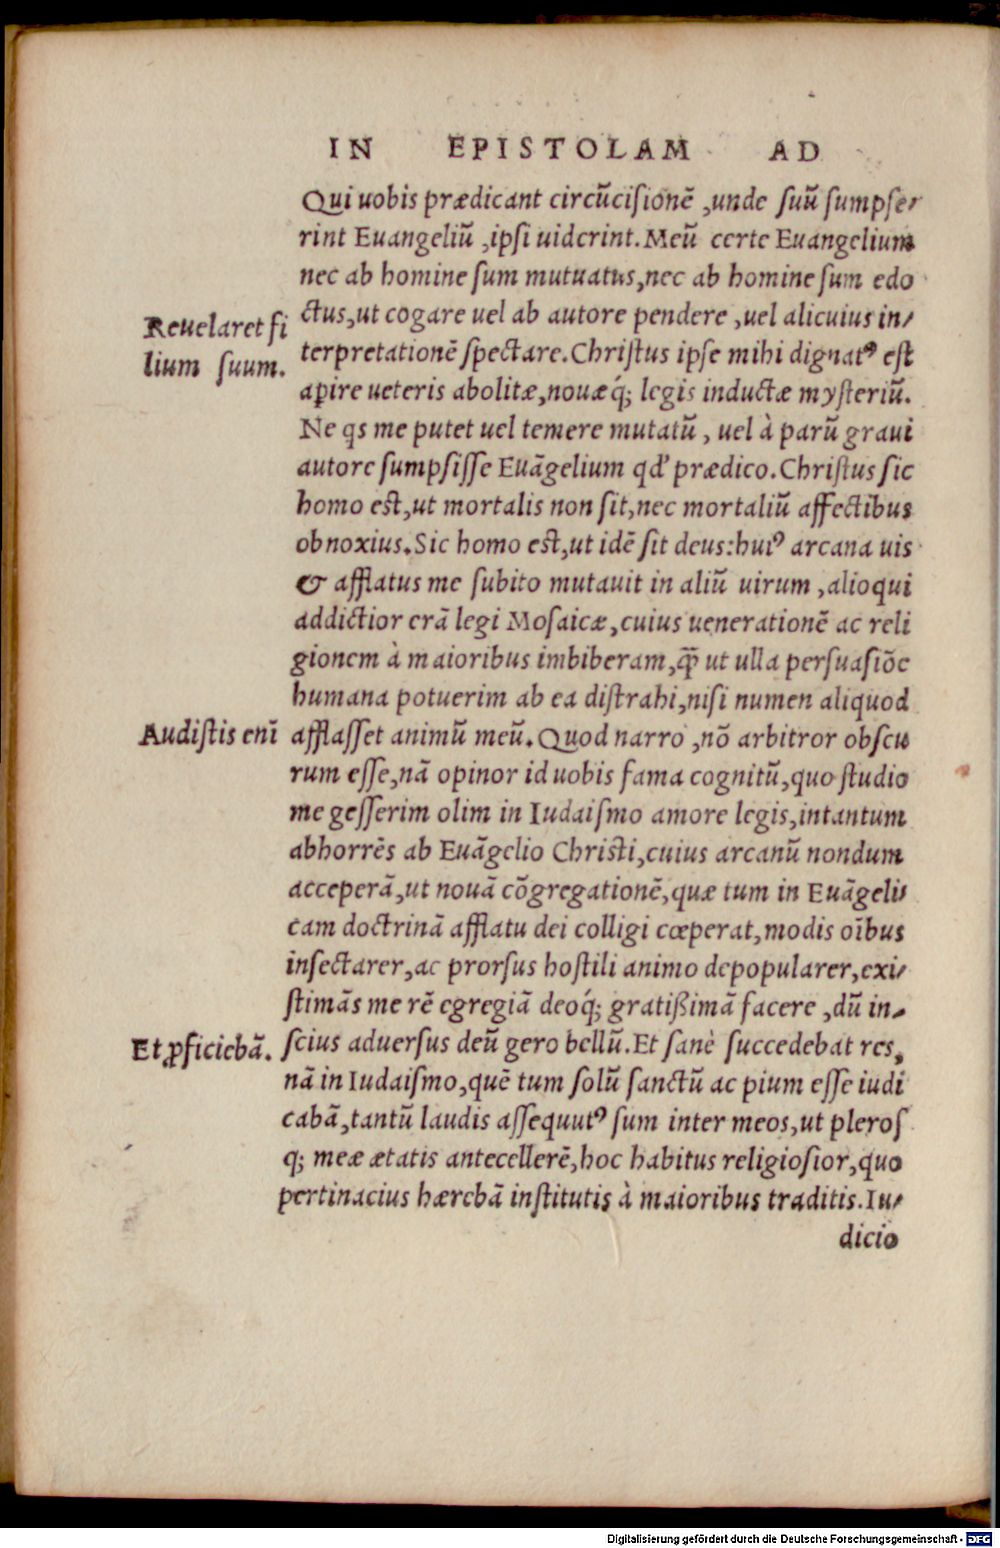 IN EPISTOLAM AD
Qui uobis prædicant circũcisionẽ, unde suũ sumpse-
rint Euangeliũ, ipsi uiderint. Meũ certe Euangelium
nec ab homine sum mutuatus, nec ab homine sum edo
ctus, ut cogare uel ab autore pendere, uel alicuius in-
Reuelaret fi
lium suum.
terpretationẽ spectare. Christus ipse mihi dignatꝰ est
aꝑire ueteris abolitæ, nouæq́; legis inductæ mysteriũ.
Ne qs me putet uel temere mutatũ, uel à parũ graui
autore sumpsisse Euãgelium qd' prædico. Christus sic
homo est, ut mortalis non sit, nec mortaliũ affectibus
obnoxius. Sic homo est, ut idẽ sit deus: huiꝰ arcana uis
& afflatus me subito mutauit in aliũ uirum, alioqui
addictior erã legi Mosaicæ, cuius uenerationẽ ac reli
gionem à maioribus imbiberam, q̃ ut ulla persuasiõe
humana potuerim ab ea distrahi, nisi numen aliquod
Audistis enĩ
afflasset animũ meũ. Quod narro, nõ arbitror obscu
rum esse, nã opinor id uobis fama cognitũ, quo studio
me gesserim olim in Iudaismo amore legis, intantum
abhorrẽs ab Euãgelio Christi, cuius arcanũ nondum
acceperã, ut nouã cõgregationẽ, quæ tum in Euãgeli-
cam doctrinã afflatu dei colligi cœperat, modis oĩbus
insectarer, ac prorsus hostili animo depopularer, exi-
stimãs me rẽ egregiã deoq́; gratißimã facere, dũ in-
Et ꝓficiebã.
scius aduersus deũ gero bellũ. Et sanè succedebat res,
nã in Iudaismo, quẽ tum solũ sanctũ ac pium esse iudi
cabã, tantũ laudis assequutꝰ sum inter meos, ut pleros
q; meæ ætatis antecellerẽ, hoc habitus religiosior, quo
pertinacius hærebã institutis à maioribus traditis. Iu-
dicio
Digitalisierung gefördert durch die Deutsche Forschungsgemeinschaft - DFG